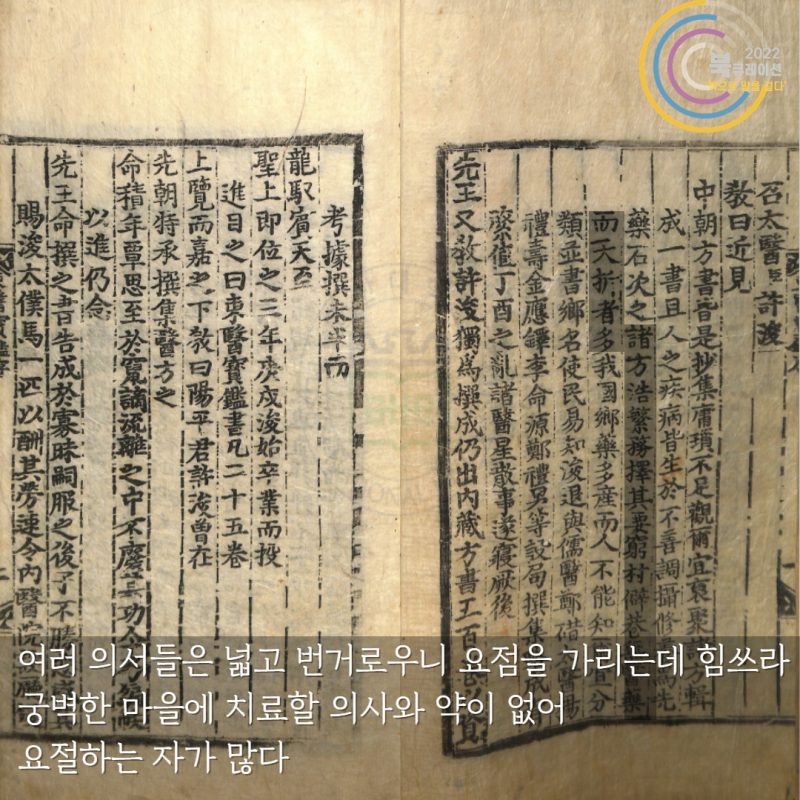 2022
북큐레이션
책으로 말을 걸다
召太醫臣許浚
敎曰近見
中朝方書皆是抄集庸瑣不足觀爾宜裒聚諸方輯
成一書且人之疾病皆生於不善調攝修養爲先
藥石次之諸方浩繁務擇其要窮村僻巷藥
而夭折者多我國鄕藥多産而人不能知爾宜分
類並書鄕名使民易知浚退與儒醫鄭碏太醫楊
禮壽金應鐸李命源鄭禮男等設局撰集
綮値丁酉之亂諸醫星散事遂寢厥後
先王又敎許浚獨爲撰成仍出內藏方書五百卷以資
考據撰未半而
龍馭賓天至
聖上卽位之三年庚戌浚始卒業而投
進目之曰東醫寶鑑書凡二十五卷
上覽而嘉之下敎曰陽平君許浚曾在
先朝特承撰集醫方之
命積年覃思至於竄謫流離之中不廢其功今乃編帙
以進仍念
先王命撰之書告成於寡昧嗣服之後予不勝悲
賜浚太僕馬一匹以酬其勞速令內醫院設廳
여러 의서들은 넓고 번거로우니 요점을 가리는데 힘쓰라
궁벽한 마을에 치료할 의사와 약이 없어
요절하는 자가 많다